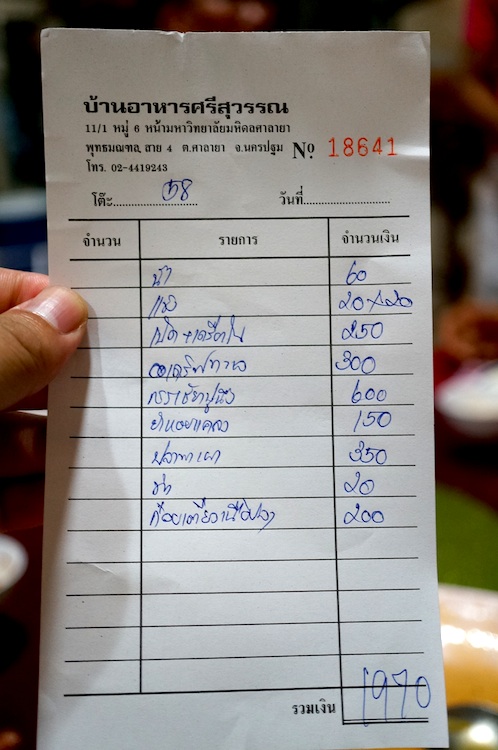 บ้านอาหารศรีสุวรรณ
11/1 หมู่ 6 หน้ามหาวิทยาลัยมหิดลศาลายา
พุทธมณฑล สาย 4 ต.ศาลายา จ.นครปฐม № 18641
โทร. 02-4419243
โต๊ะ.................... 58 วันที่..........................
จำนวน รายการ จำนวนเงิน
น้ำ 60
20+20
250
300
600
ยำหอยแครง 150
ปลาเผา 350
ชา 20
ก๋วยเตี๋ยวเนื้อปลา 200
รวมเงิน 1970